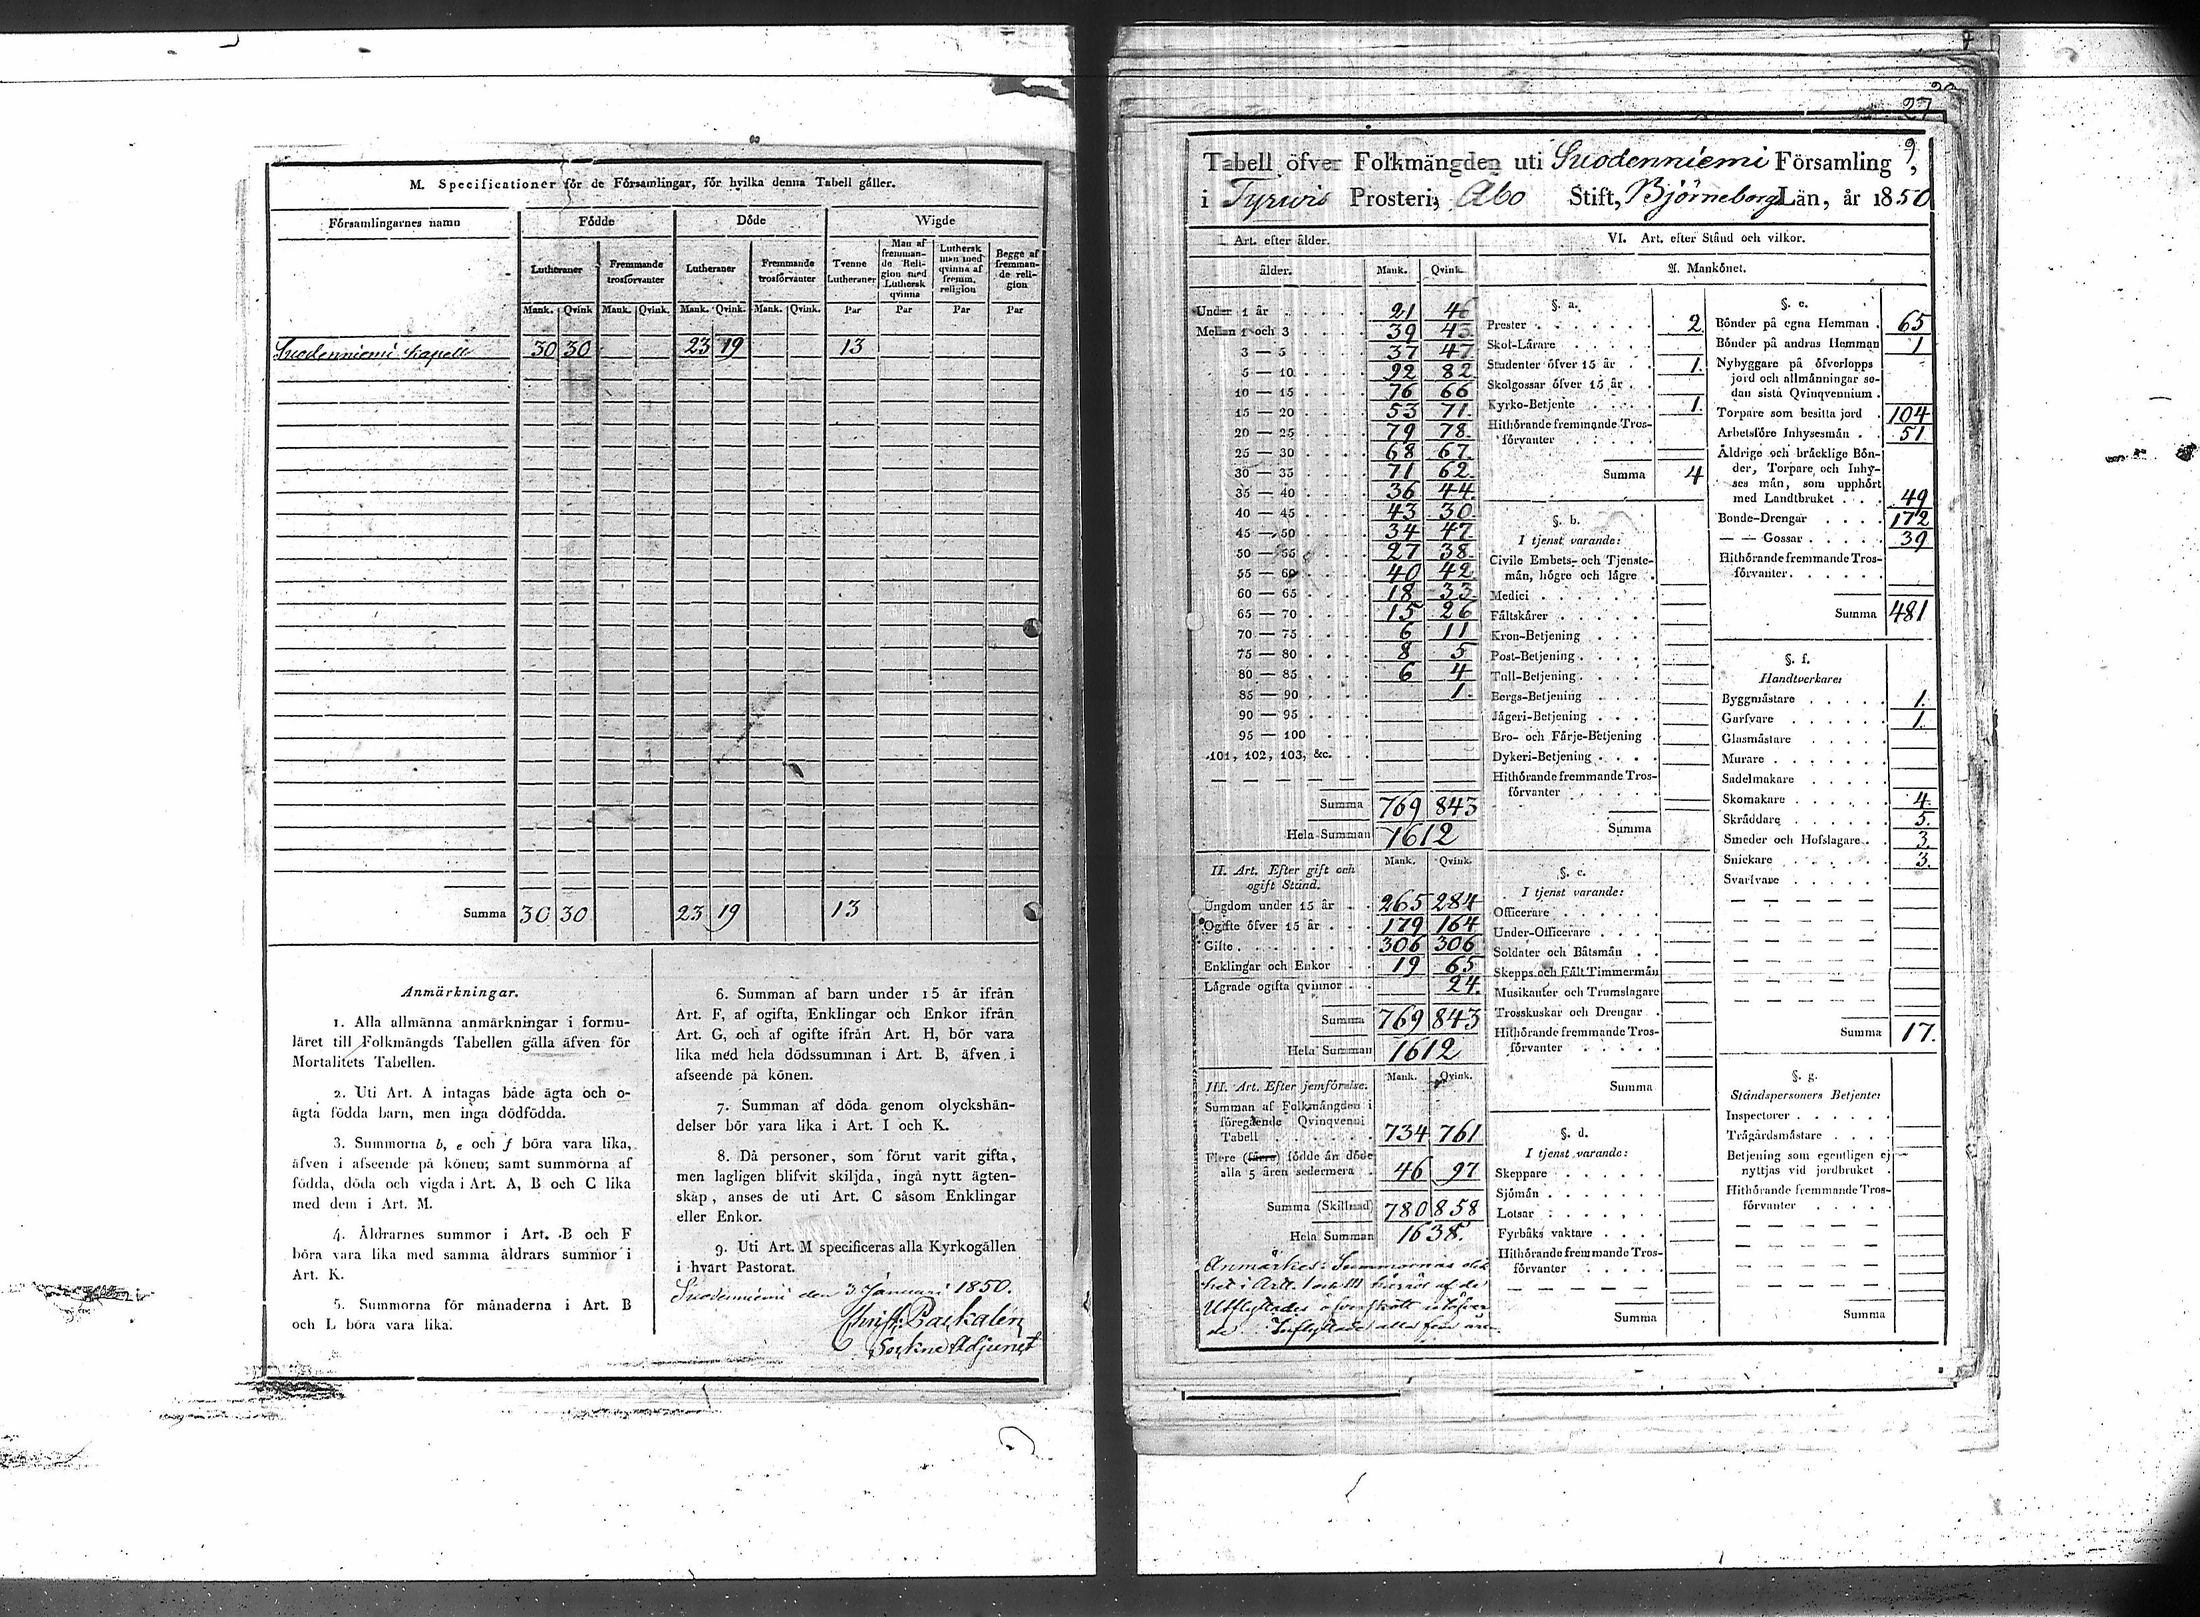 M. Specificationer för de Församlingar, för hvilka denna Tabell gäller.
Församlingarnes namn
Födde
Döde
Wigde
Lutheraner
Fremmande trosförvanter
Lutheraner
Fremmande trosförvanter
Tvenne Lutheraner
Man af fremmande Religion med Luthersk qvinna
Luthersk man med qvinna af fremm. religion
Begge af fremmande religion
Mank. Qvink Mank. Qvink. Mank. Qvink. Mank. Qvink. Par Par Par Par
Suodenniemi Kapell 30 30 23 19 13
Summa 30 30 23 19 13
Anmärkningar.
1. Alla allmänna anmärkningar i formu-
läret till Folkmängds Tabellen gälla äfven för
Mortalitets Tabellen.
2. Uti Art. A intagas både ägta och o-
ägta födda barn, men inga dödfödda.
3. Summorna b, e och f böra vara lika,
äfven i afseende på könen; samt summorna af
födda, döda och vigda i Art. A, B och C lika
med dem i Art. M.
4. Åldrarnes summor i Art. B och F
böra vara lika med samma åldrars summor i
Art. K.
5. Summorna för månaderna i Art. B
och L böra vara lika.
6. Summan af barn under 15 år ifrån
Art. F, af ogifta, Enklingar och Enkor ifrån
Art. G, och af ogifte ifrån Art. H, bör vara
lika med hela dödssumman i Art. B, äfven i
afseende på könen.
7. Summan af döda genom olyckshän-
delser bör vara lika i Art. I och K.
8. Då personer, som förut varit gifta,
men lagligen blifvit skiljda, ingå nytt ägten-
skap, anses de uti Art. C såsom Enklingar
eller Enkor.
9. Uti Art. M specificeras alla Kyrkogällen
i hvart Pastorat.
Suodenniemi den 3 Januari 1850.
Sockne Adjunct
27
9
Tabell öfver Folkmängden uti Suodenniemi Församling,
i Tyrvis Prosteri, Åbo Stift, Björneborg Län, år 1850
I. Art. efter ålder.
ålder. Mank. Qvink.
Under 1 år 21 46
Mellan 1 och 3 39 43
3 — 5 37 47
5 — 10 92 82
10 — 15 76 66
15 — 20 53 71
20 — 25 79 78
25 — 30 68 67
30 — 35 71 62
35 — 40 36 44
40 — 45 43 30
45 — 50 34 47
50 — 55 27 38
55 — 60 40 42
60 — 65 18 33
65 — 70 15 26
70 — 75 6 11
75 — 80 8 5
80 — 85 6 4
85 — 90 1
90 — 95
95 — 100
101, 102, 103, &c.
Summa 769 843
Hela Summan 1612
II. Art. Efter gift och ogift Stånd. Mank. Qvink.
Ungdom under 15 år 265 284
Ogifte öfver 15 år 179 164
Gifte 306 306
Enklingar och Enkor 19 65
Lägrade ogifta qvinnor 24
Summa 769 843
Hela Summan 1612
III. Art. Efter jemförelse. Mank. Qvink.
Summan af Folkmängden i
föregående Qvinqvenni
Tabell 734 761
Flere (färre) födde än döde
alla 5 åren sedermera 46 97
Summa (Skillnad) 780 858
Hela Summan 1638
VI. Art. efter Stånd och vilkor.
A. Mankönet.
§. a.
Prester 2
Skol-Lärare
Studenter öfver 15 år 1.
Skolgossar öfver 15 år
Kyrko-Betjente 1.
Hithörande fremmande Tros-
förvanter
Summa 4
§. b.
I tjenst varande:
Civile Embets- och Tjenste-
män, högre och lägre
Medici
Fältskärer
Kron-Betjening
Post-Betjening
Tull-Betjening
Bergs-Betjening
Jägeri-Betjening
Bro- och Färje-Betjening
Dykeri-Betjening
Hithörande fremmande Tros-
förvanter
Summa
§. c.
I tjenst varande:
Officerare
Under-Officerare
Soldater och Båtsmän
Skepps och Fält Timmermän
Musikanter och Trumslagare
Trosskuskar och Drengar
Hithörande fremmande Tros-
förvanter
Summa
§. d.
I tjenst varande:
Skeppare
Sjömän
Lotsar
Fyrbåks vaktare
Hithörande fremmande Tros-
förvanter
Summa
§. e.
Bönder på egna Hemman 65
Bönder på andras Hemman 1
Nybyggare på öfverlopps
jord och allmänningar se-
dan sista Qvinqvennium
Torpare som besitta jord 104
Arbetsföre Inhysesmän 51
Åldrige och bräcklige Bön-
der, Torpare och Inhy-
ses män, som upphört
med Landtbruket 49
Bonde-Drengar 172
— — Gossar 39
Hithörande fremmande Tros-
förvanter
Summa 481
§. f.
Handtverkare:
Byggmästare 1.
Garfvare 1.
Glasmästare
Murare
Sadelmakare
Skomakare 4.
Skräddare 5.
Smeder och Hofslagare 3.
Snickare 3.
Svarfvare
Summa 17.
§. g.
Ståndspersoners Betjente:
Inspectorer
Trägårdsmästare
Betjening som egentligen ej
nyttjas vid jordbruket
Hithörande fremmande Tros-
förvanter
Summa